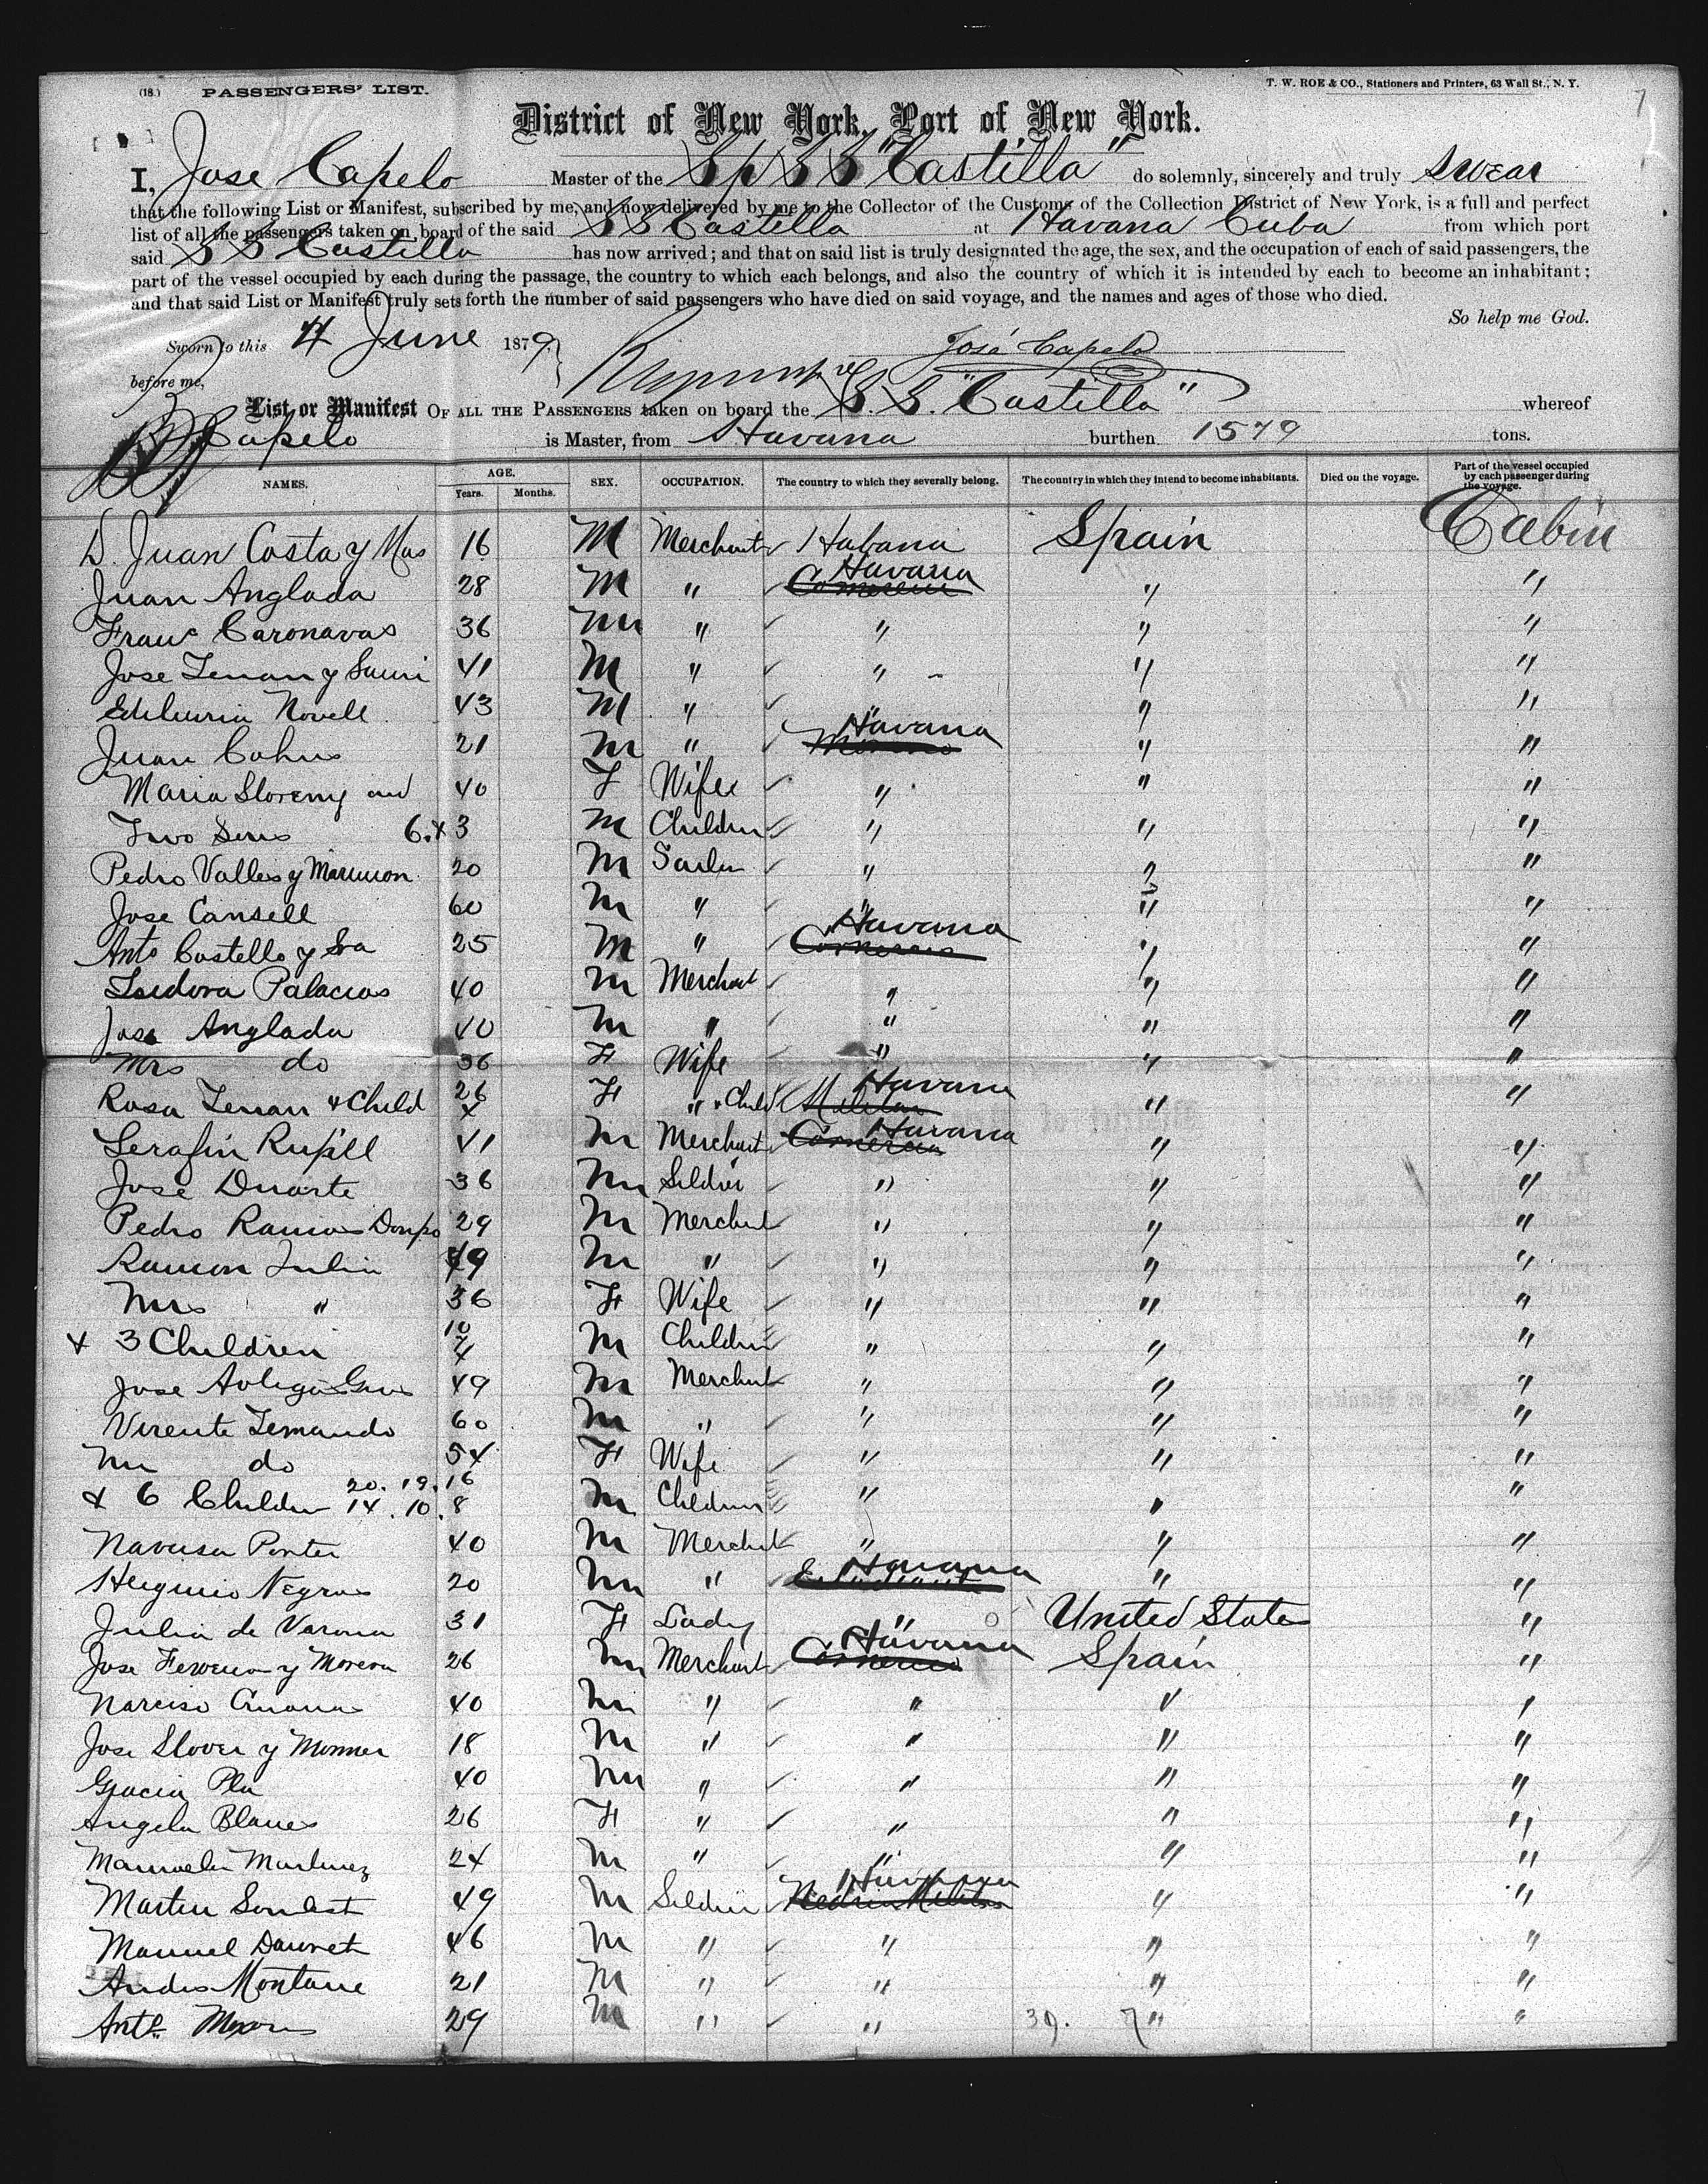 (18.) PASSENGERS' LIST.
T. W. ROE & CO., Stationers and Printers, 63 Wall St., N. Y.
7
District of New York, Port of New York.
I, Jose Capelo Master of the Sp SS "Castilla" do solemnly, sincerely and truly swear
that the following List or Manifest, subscribed by me, and now delivered by me to the Collector of the Customs of the Collection District of New York, is a full and perfect
list of all the passengers taken on board of the said SS Castilla at Havana Cuba from which port
said SS Castilla has now arrived; and that on said list is truly designated the age, the sex, and the occupation of each of said passengers, the
part of the vessel occupied by each during the passage, the country to which each belongs, and also the country of which it is intended by each to become an inhabitant;
and that said List or Manifest truly sets forth the number of said passengers who have died on said voyage, and the names and ages of those who died.
So help me God.
Sworn to this 4 June 1879.
José Capelo
before me,
List or Manifest OF ALL THE PASSENGERS taken on board the S.S. "Castilla" whereof
Capelo is Master, from Havana burthen 1579 tons.
NAMES. AGE. Years. Months. SEX. OCCUPATION. The country to which they severally belong. The country in which they intend to become inhabitants. Died on the voyage. Part of the vessel occupied by each passenger during the voyage.
D. Juan Costa y Mas 16 M Merchant Habana Spain Cabin
Juan Anglada 28 M " Havana " "
Franc Caronavas 36 M " " " "
Jose 41 M " " " "
Novell 43 M " " " "
Juan 21 M " Havana " "
Maria and 40 F Wife " " "
Two Sons 6 & 3 M Children " " "
Pedro Valles y 20 M " " "
Jose Cansell 60 M " " " "
Anto Costello y Sra 25 M " Havana " "
Isidora Palacios 40 M Merchant " " "
Jose Anglada 40 M " " " "
Mrs do 36 F Wife " " "
Rosa & Child 26 F " & Child Havana " "
Serafin 41 M Merchant Havana " "
Jose Duarte 36 M Soldier " " "
Pedro Ramos 29 M Merchant " " "
Ramon Julia 49 M " " " "
Mrs " 36 F Wife " " "
& 3 Children 10 M Children " " "
Jose 49 M Merchant " " "
Vicente 60 M " " " "
Mrs do 54 F Wife " " "
& 6 Children 20. 19. 16 14. 10. 8 M Children " " "
40 M Merchant " " "
Negras 20 M " Havana " "
Julia de Varona 31 F Lady " United States "
Jose y Morera 26 M Merchant Havana Spain "
Narciso 40 M " " " "
Jose Llover y 18 M " " " "
Gracia Pla 40 M " " " "
Angela Blanes 26 F " " " "
Manuela Martinez 24 M " " " "
Martin 49 M Soldier Havana " "
Manuel 46 M " " " "
Andres Montane 21 M " " " "
Anto 29 M " " " "